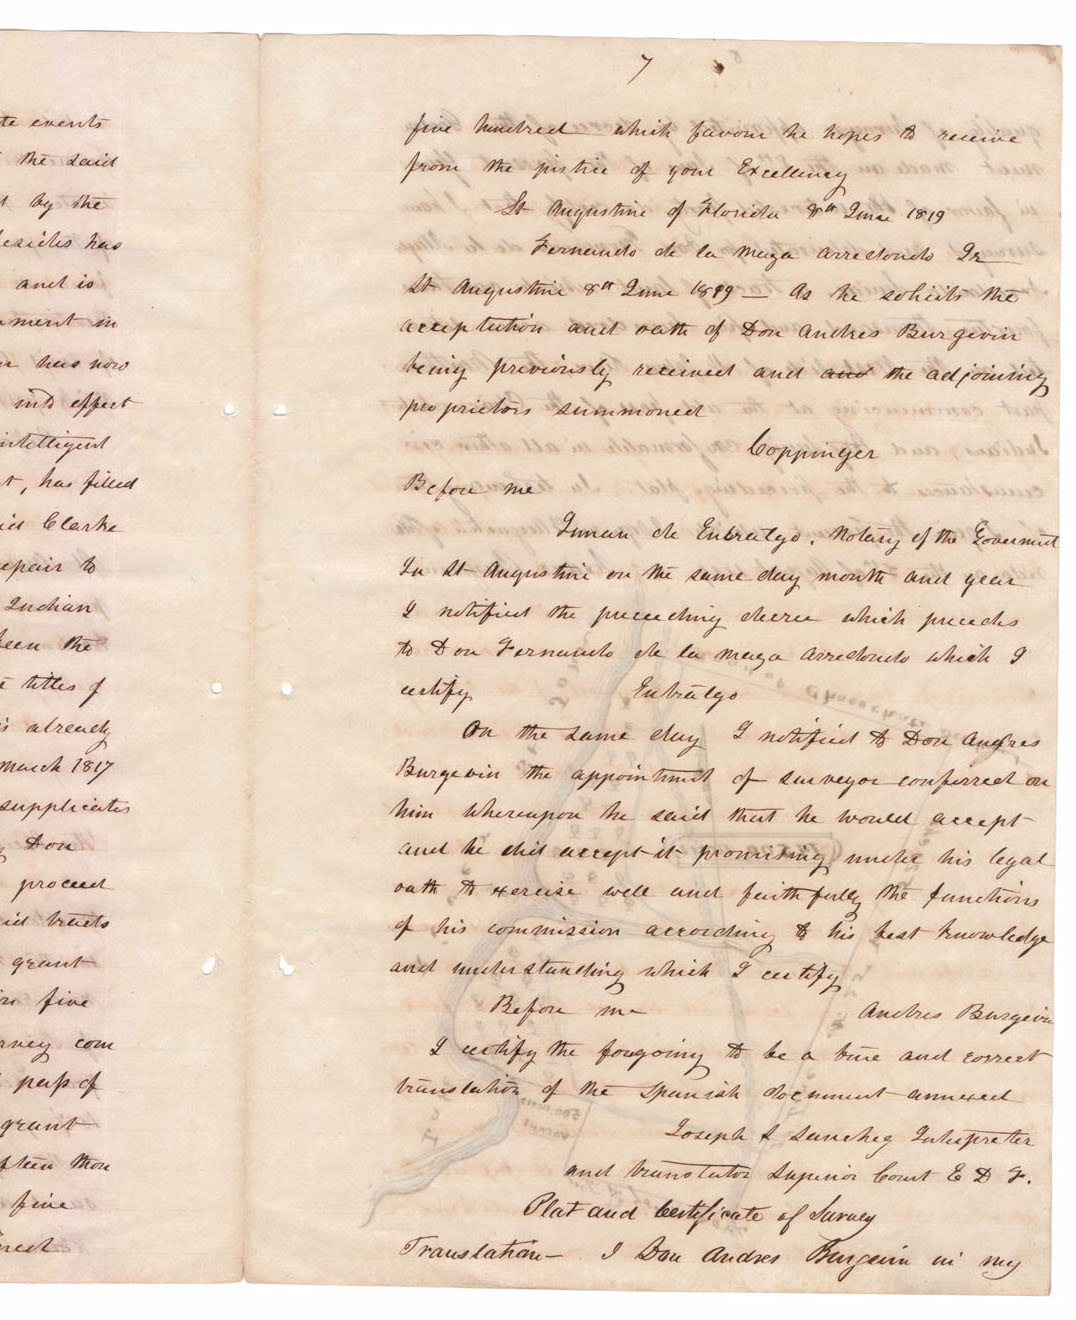 te events
the said
by the
besides has
and is
nment in
has now
into effect
intelligent
, has filled
id Clarke
epair to
Indian
een the
titles of
is already
march 1817
supplicates
Don
proceed
id tracts
grant
in five
rvey com
pass of
grant
fteen thou
five
7
five hundred which favour he hopes to receive
from the justice of your Excellency
St Augustine of Florida 8th June 1819
Fernando de la maza arredondo Jr
St Augustine 8th June 1819 — As he solicits the
acceptation and oath of Don Andres Burgevin
being previously received and and the adjoining
proprietors summoned
Coppinger
Before me
Juan de Entralgo, Notary of the Goverment
In St Augustine on the same day month and year
I notified the preceeding decree which precedes
to Don Fernando de la maza arredondo which I
certify Entralgo
On the same day I notified to Don Andres
Burgevin the appointment of surveyor conferred on
him whereupon he said that he would accept
and he did accept it promising under his legal
oath to exercise well and faithfully the functions
of his commission according to his best knowledge
and understanding which I certify
Before me Andres Burgevin
I certify the foregoing to be a true and correct
translation of the Spanish document annexed
Joseph S Sanchez Interpreter
and translator Superior Court E D F.
Plat and Certificate of Survey
Translation — I Don Andres Burgevin in my